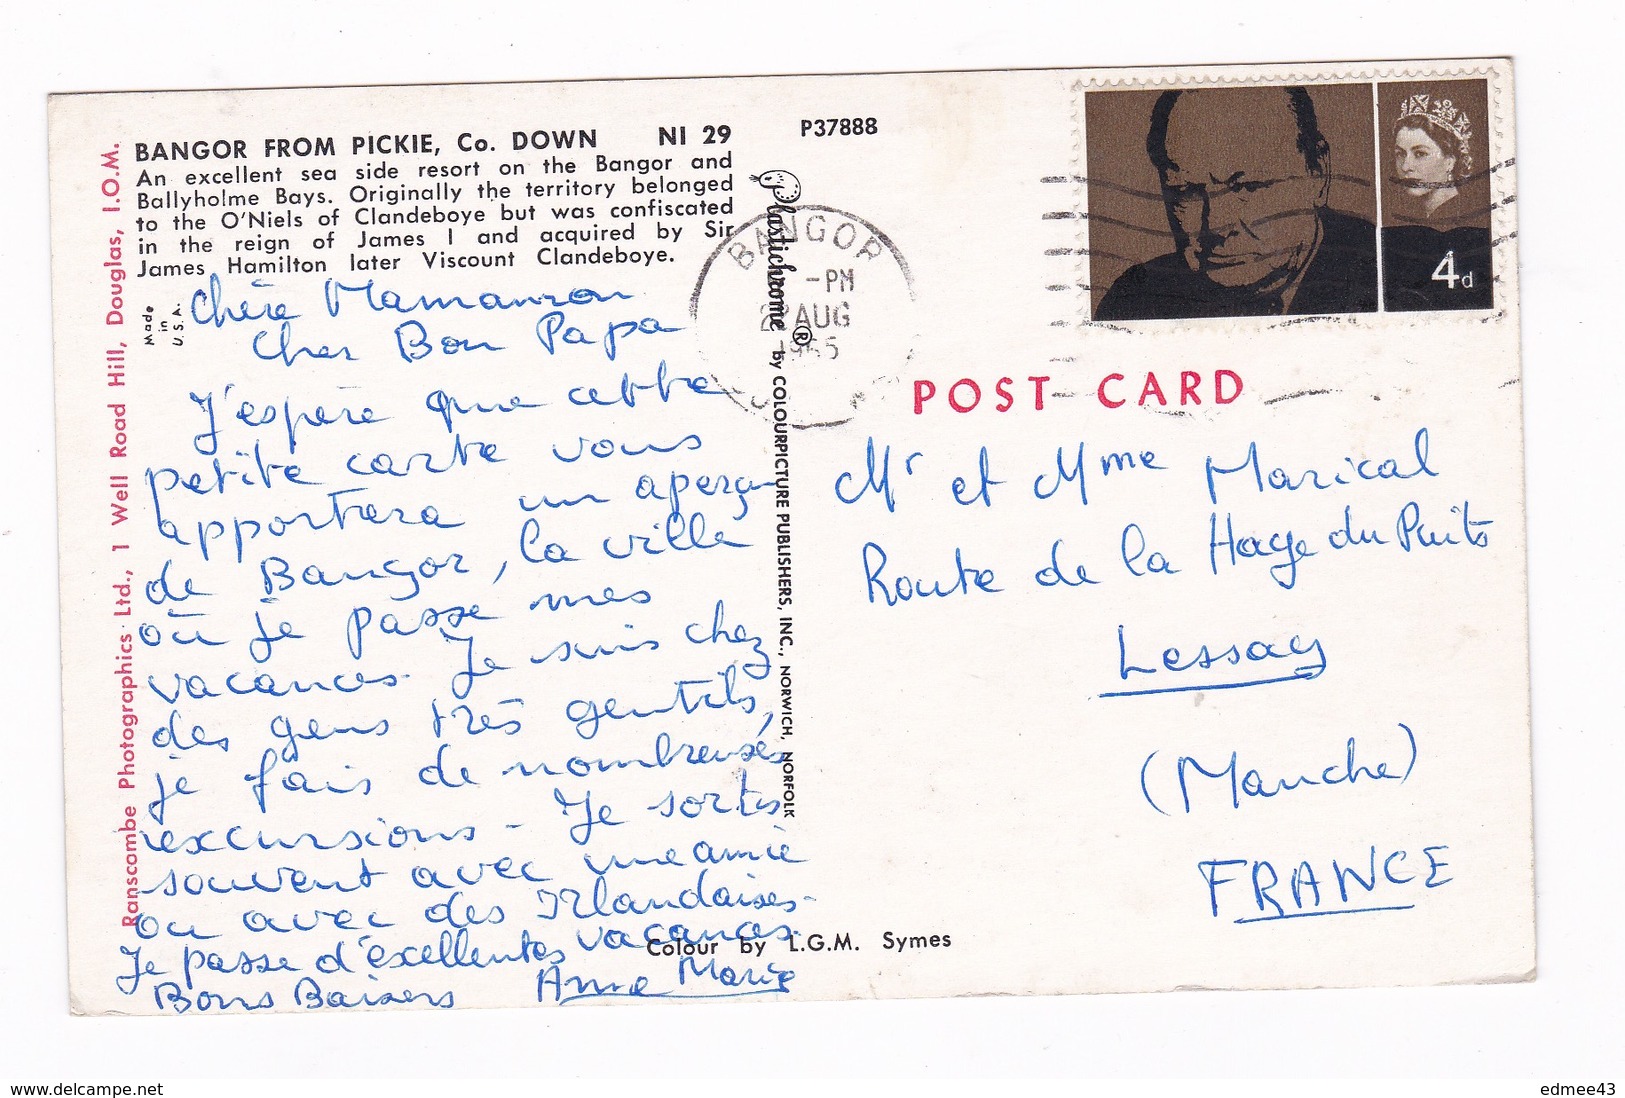 BANGOR FROM PICKIE, Co. DOWN NI 29
An excellent sea side resort on the Bangor and
Ballyholme Bays. Originally the territory belonged
to the O'Niels of Clandeboye but was confiscated
in the reign of James I and acquired by Sir
James Hamilton later Viscount Clandeboye.
P37888
Ranscombe Photographics Ltd., 1 Well Road Hill, Douglas, I.O.M.
Made
in
U.S.A.
Chère Mamanron
Cher Bon Papa
J'espère que cette
petite carte vous
apportera un aperçu
de Bangor, la ville
où je passe mes
vacances. Je suis chez
des gens très gentils,
je fais de nombreuses
excursions - Je sors
souvent avec une amie
ou avec des Irlandaises-
Je passe d'excellentes vacances.
Bons Baisers Anne Marie
Plastichrome ® by COLOURPICTURE PUBLISHERS, INC., NORWICH, NORFOLK
BANGOR
-PM
AUG
1965
4d
POST CARD
Mr et Mme Marical
Route de la Haye du Puits
Lessay
(Manche)
FRANCE
Colour by L.G.M. Symes
www.delcampe.net
edmee43